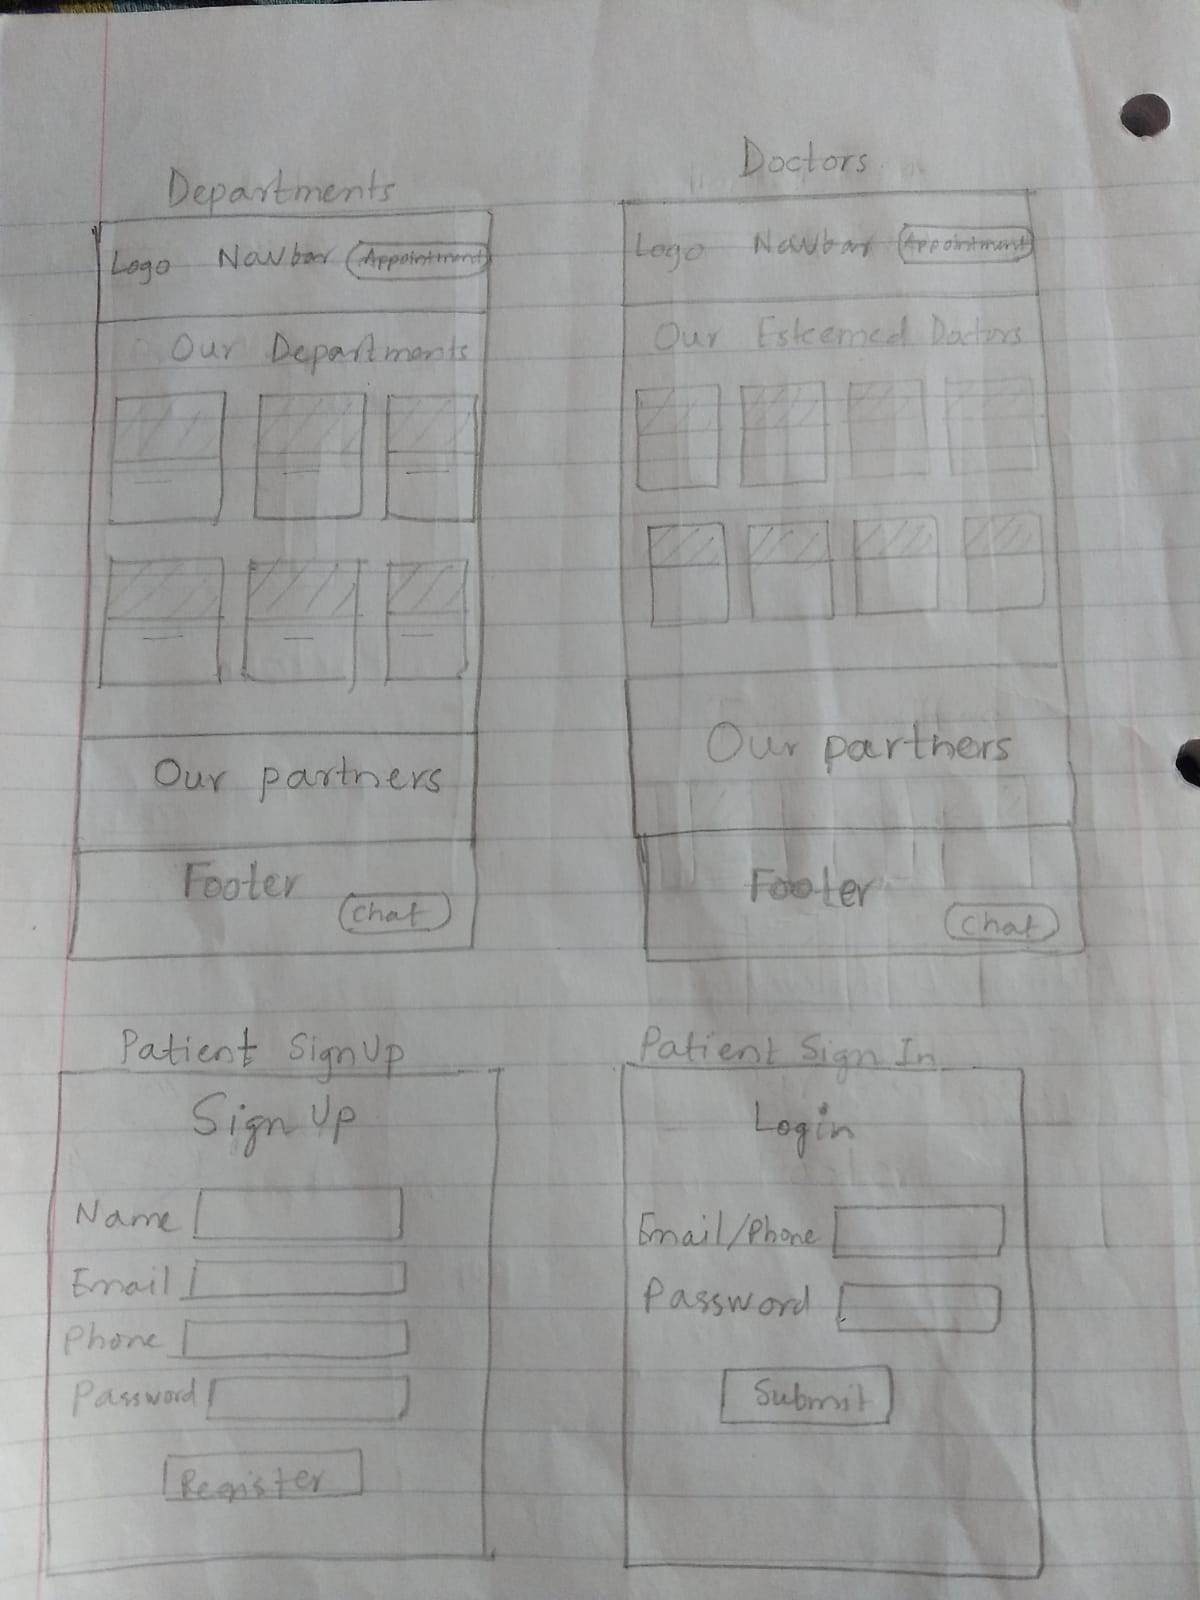 Departments
Logo Navbar Appointment
Our Departments
Our partners
Footer
Chat
Doctors
Logo Navbar Appointment
Our Esteemed Doctors
Our partners
Footer
Chat
Patient SignUp
Sign Up
Name
Email
Phone
Password
Register
Patient Sign In
Login
Email/Phone
Password
Submit